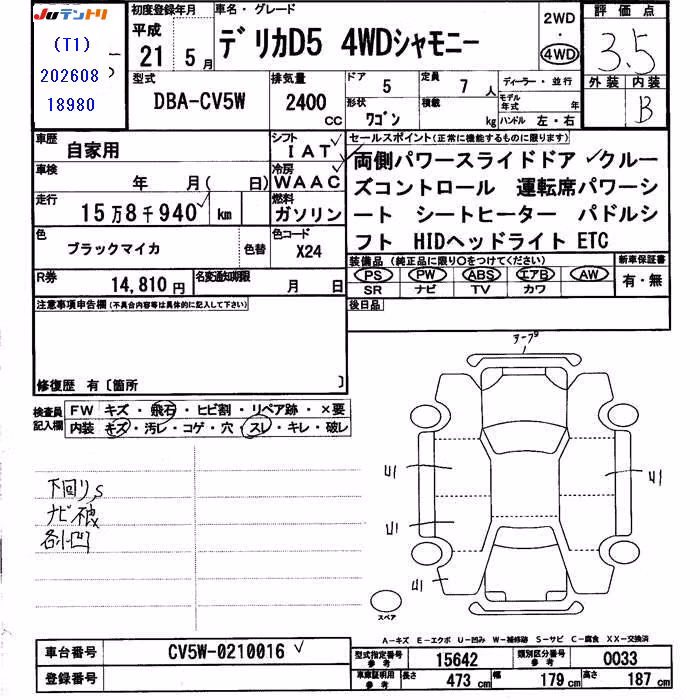 Juテントリ
(T1)
202608
18980
初度登録年月
平成
21 5月
車名・グレード
デリカD5 4WDシャモニー
2WD
・
4WD
評価点
3.5
外装 内装
B
型式
DBA-CV5W
排気量
2400
cc
ドア
5
定員
7人
形状
ワゴン
積載
kg
ディーラー・並行
モデル年式 年
ハンドル 左・右
車歴
自家用
シフト
IAT
車検
年 月( 日)
冷房
WAAC
走行
15万8千940 km
燃料
ガソリン
色
ブラックマイカ
色替
色コード
X24
R券
14,810円
名変通知期限
月 日
セールスポイント(正常に機能するものに限ります)
両側パワースライドドア クルー
ズコントロール 運転席パワーシ
ート シートヒーター パドルシ
フト HIDヘッドライト ETC
装備品(純正品に限り○をつけてください)
PS PW ABS エアB AW
SR ナビ TV カワ
新車保証書
有・無
後日品
注意事項申告欄(不具合内容等は具体的に記入して下さい)
修復歴 有〔箇所 〕
検査員
記入欄
FW キズ・飛石・ヒビ割・リペア跡・×要
内装 キズ・汚レ・コゲ・穴・スレ・キレ・破レ
下回りS
ナビ不良
各小凹
U1
U1
U1
U1
スペア
A-キズ E-エクボ U-凹み W-補修跡 S-サビ C-腐食 XX-交換済
車台番号
CV5W-0210016
登録番号
型式指定番号
参考
15642
類別区分番号
参考
0033
車庫証明用
参考
長さ 473 cm 幅 179 cm 高さ 187 cm